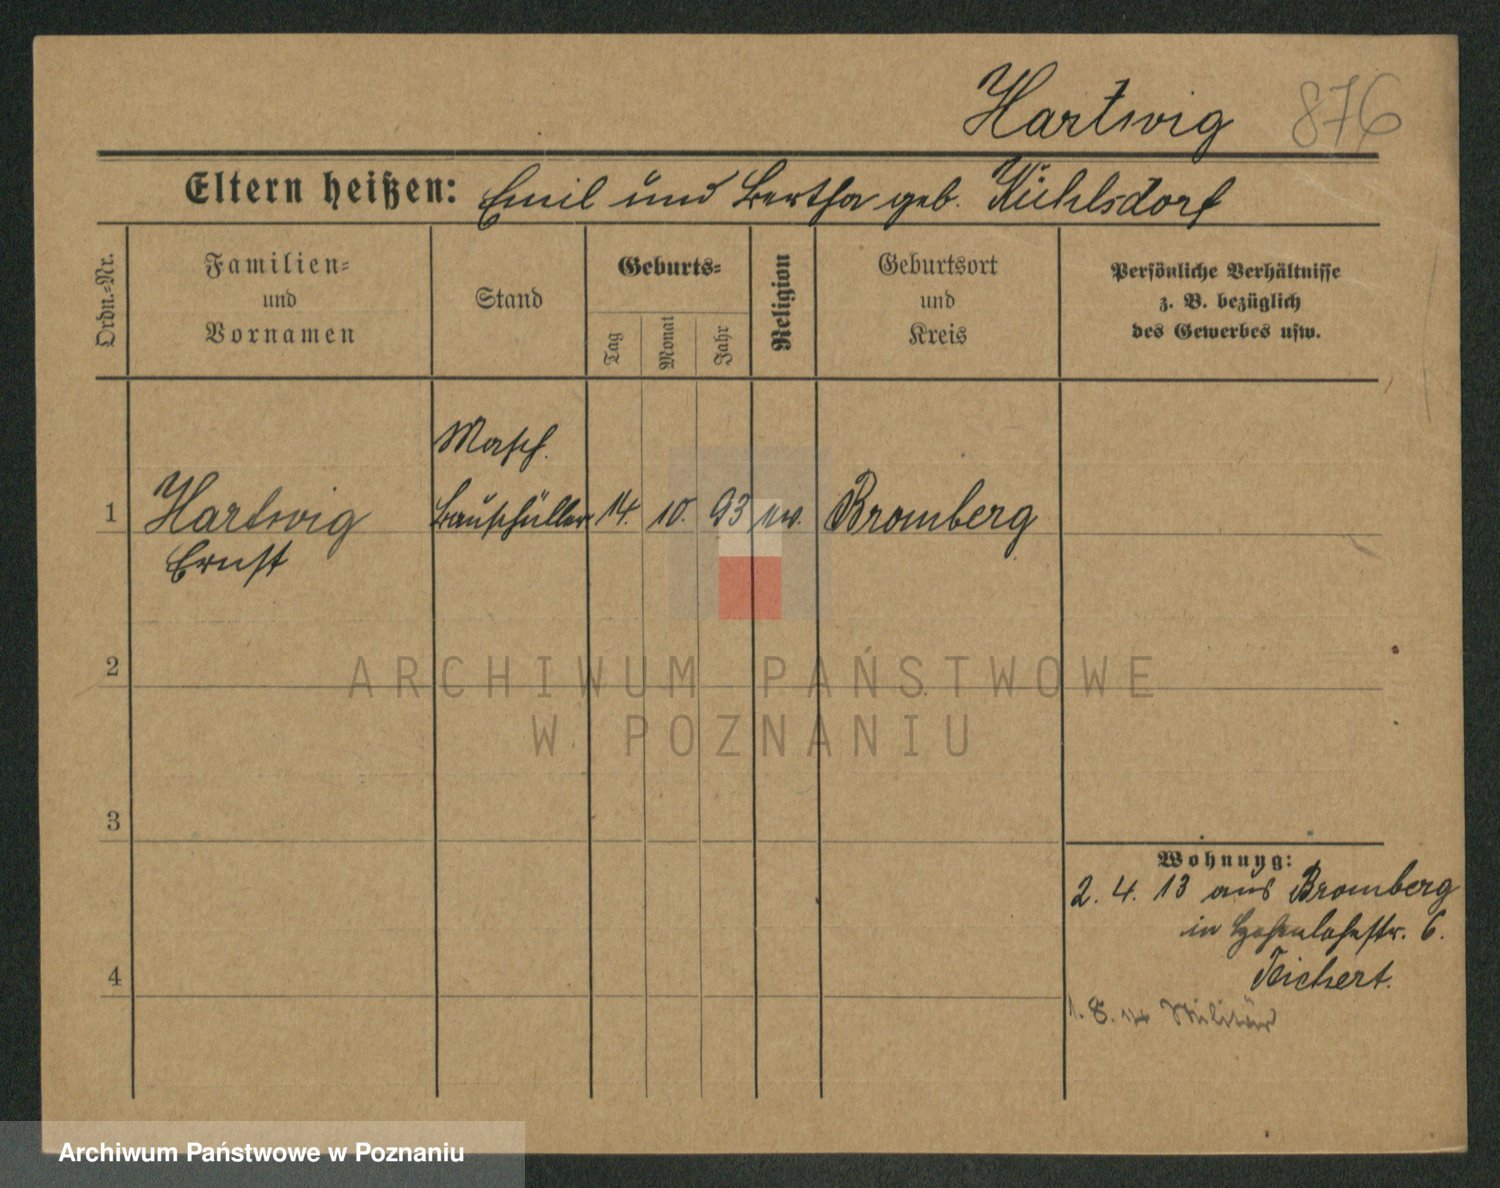 Hartwig 876
Eltern heißen: Emil und Bertha geb. Kühlsdorf
Ordn.=Nr.
Familien=
und
Vornamen
Stand
Geburts=
Tag
Monat
Jahr
Religion
Geburtsort
und
Kreis
Persönliche Verhältnisse
z. B. bezüglich
des Gewerbes usw.
Masch.
1 Hartwig Bauschüler 14. 10. 93 ev. Bromberg
Ernst
2
ARCHIWUM PAŃSTWOWE
W POZNANIU
3
Wohnung:
2. 4. 13 aus Bromberg
in Hohenlohestr. 6.
4
1. 8. 14 Militär
Archiwum Państwowe w Poznaniu